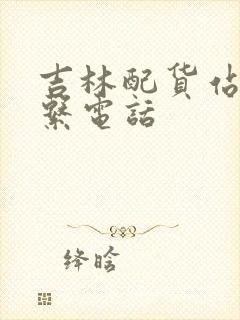 吉林配货佔
繫電話
绛晗